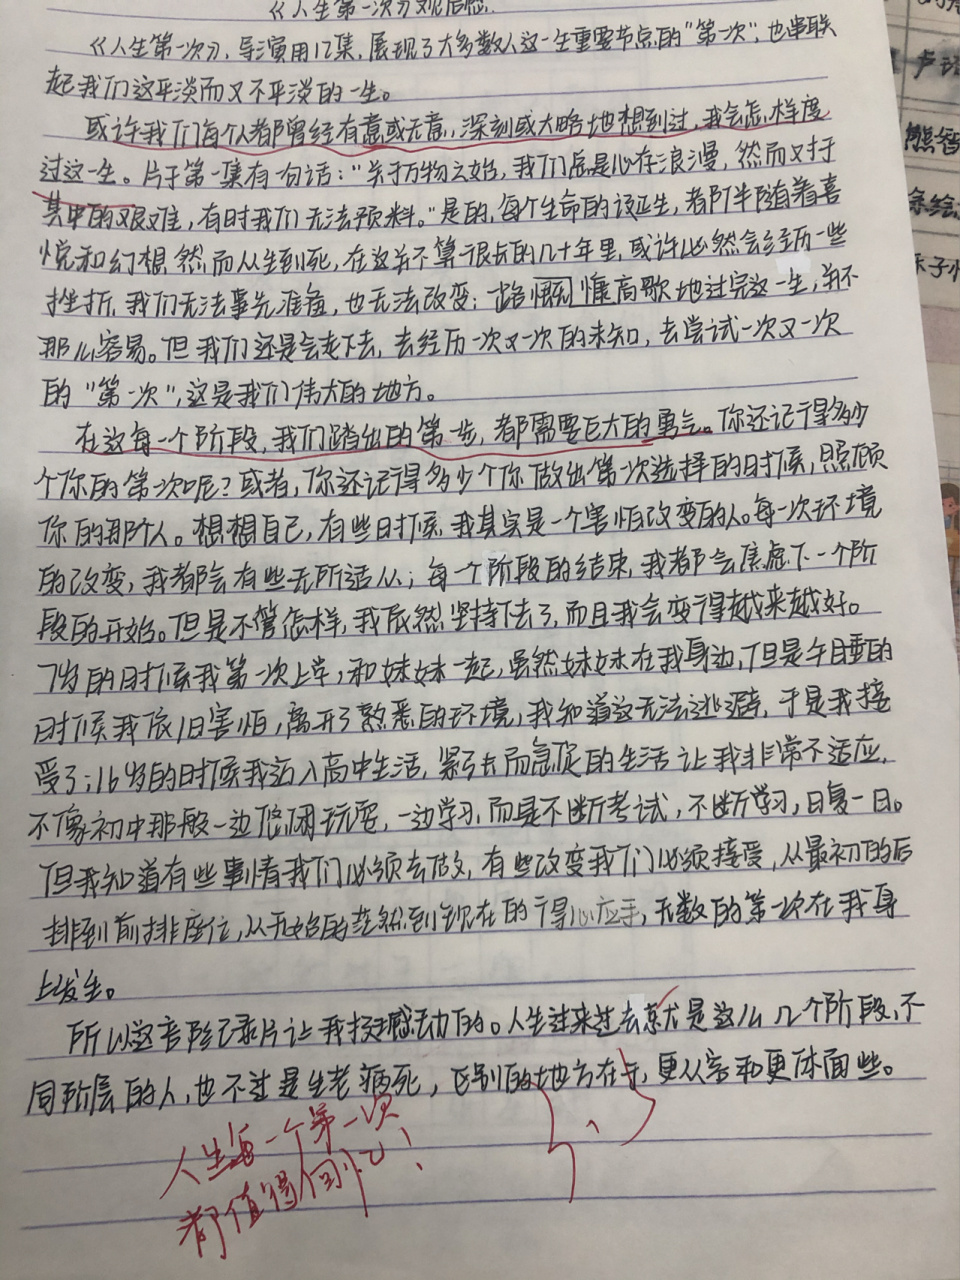 《人生第一次》观后感
《人生第一次》,导演用12集,展现了大多数人这一生重要节点的"第一次",也串联
起我们这平淡而又不平淡的一生。
或许我们每个人都曾经有意或无意,深刻或大略地想到过,我会怎样度
过这一生。片子第一集有一句话:"关于万物之始,我们总是心存浪漫,然而又对于
其中的艰难,有时我们无法预料。"是的,每个生命的诞生,都伴随着喜
悦和幻想,然而从生到死,在这并不算很长的几十年里,或许必然会经历一些
挫折,我们无法事先准备,也无法改变;一路慷慨高歌地过完这一生,并不
那么容易。但我们还是会走下去,去经历一次又一次的未知,去尝试一次又一次
的"第一次",这是我们伟大的地方。
在这每一个阶段,我们踏出的第一步,都需要巨大的勇气。你还记得多少
个你的第一次呢?或者,你还记得多少个你做出第一次选择的时候,照顾
你的那个人。想想自己,有些时候,我其实是一个害怕改变的人。每一次环境
的改变,我都会有些无所适从;每一个阶段的结束,我都会焦虑下一个阶
段的开始。但是不管怎样,我依然坚持下去了,而且我会变得越来越好。
7岁的时候我第一次上学,和妹妹一起,虽然妹妹在我身边,但是午睡的
时候我依旧害怕,离开了熟悉的环境,我知道这无法逃避,于是我接
受了;16岁的时候我迈入高中生活,紧张而急促的生活让我非常不适应,
不像初中那般一边悠闲玩耍,一边学习,而是不断考试,不断学习,日复一日。
但我知道有些事情我们必须去做,有些改变我们必须接受,从最初的后
排到前排座位,从开始的茫然到现在的得心应手,无数的第一次在我身
上发生。
所以这部纪录片让我挺感动的。人生过来过去就是这么几个阶段,不
同阶层的人,也不过是生老病死,区别的地方在于,更从容和更体面些。
人生每一个第一次
都值得回忆!